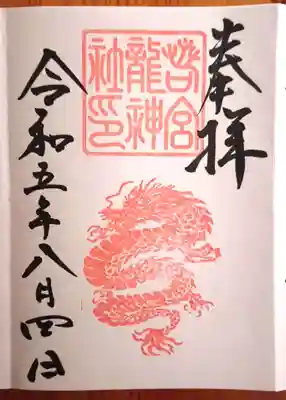 奉拝
宮
龍神
社印
令和五年八月四日